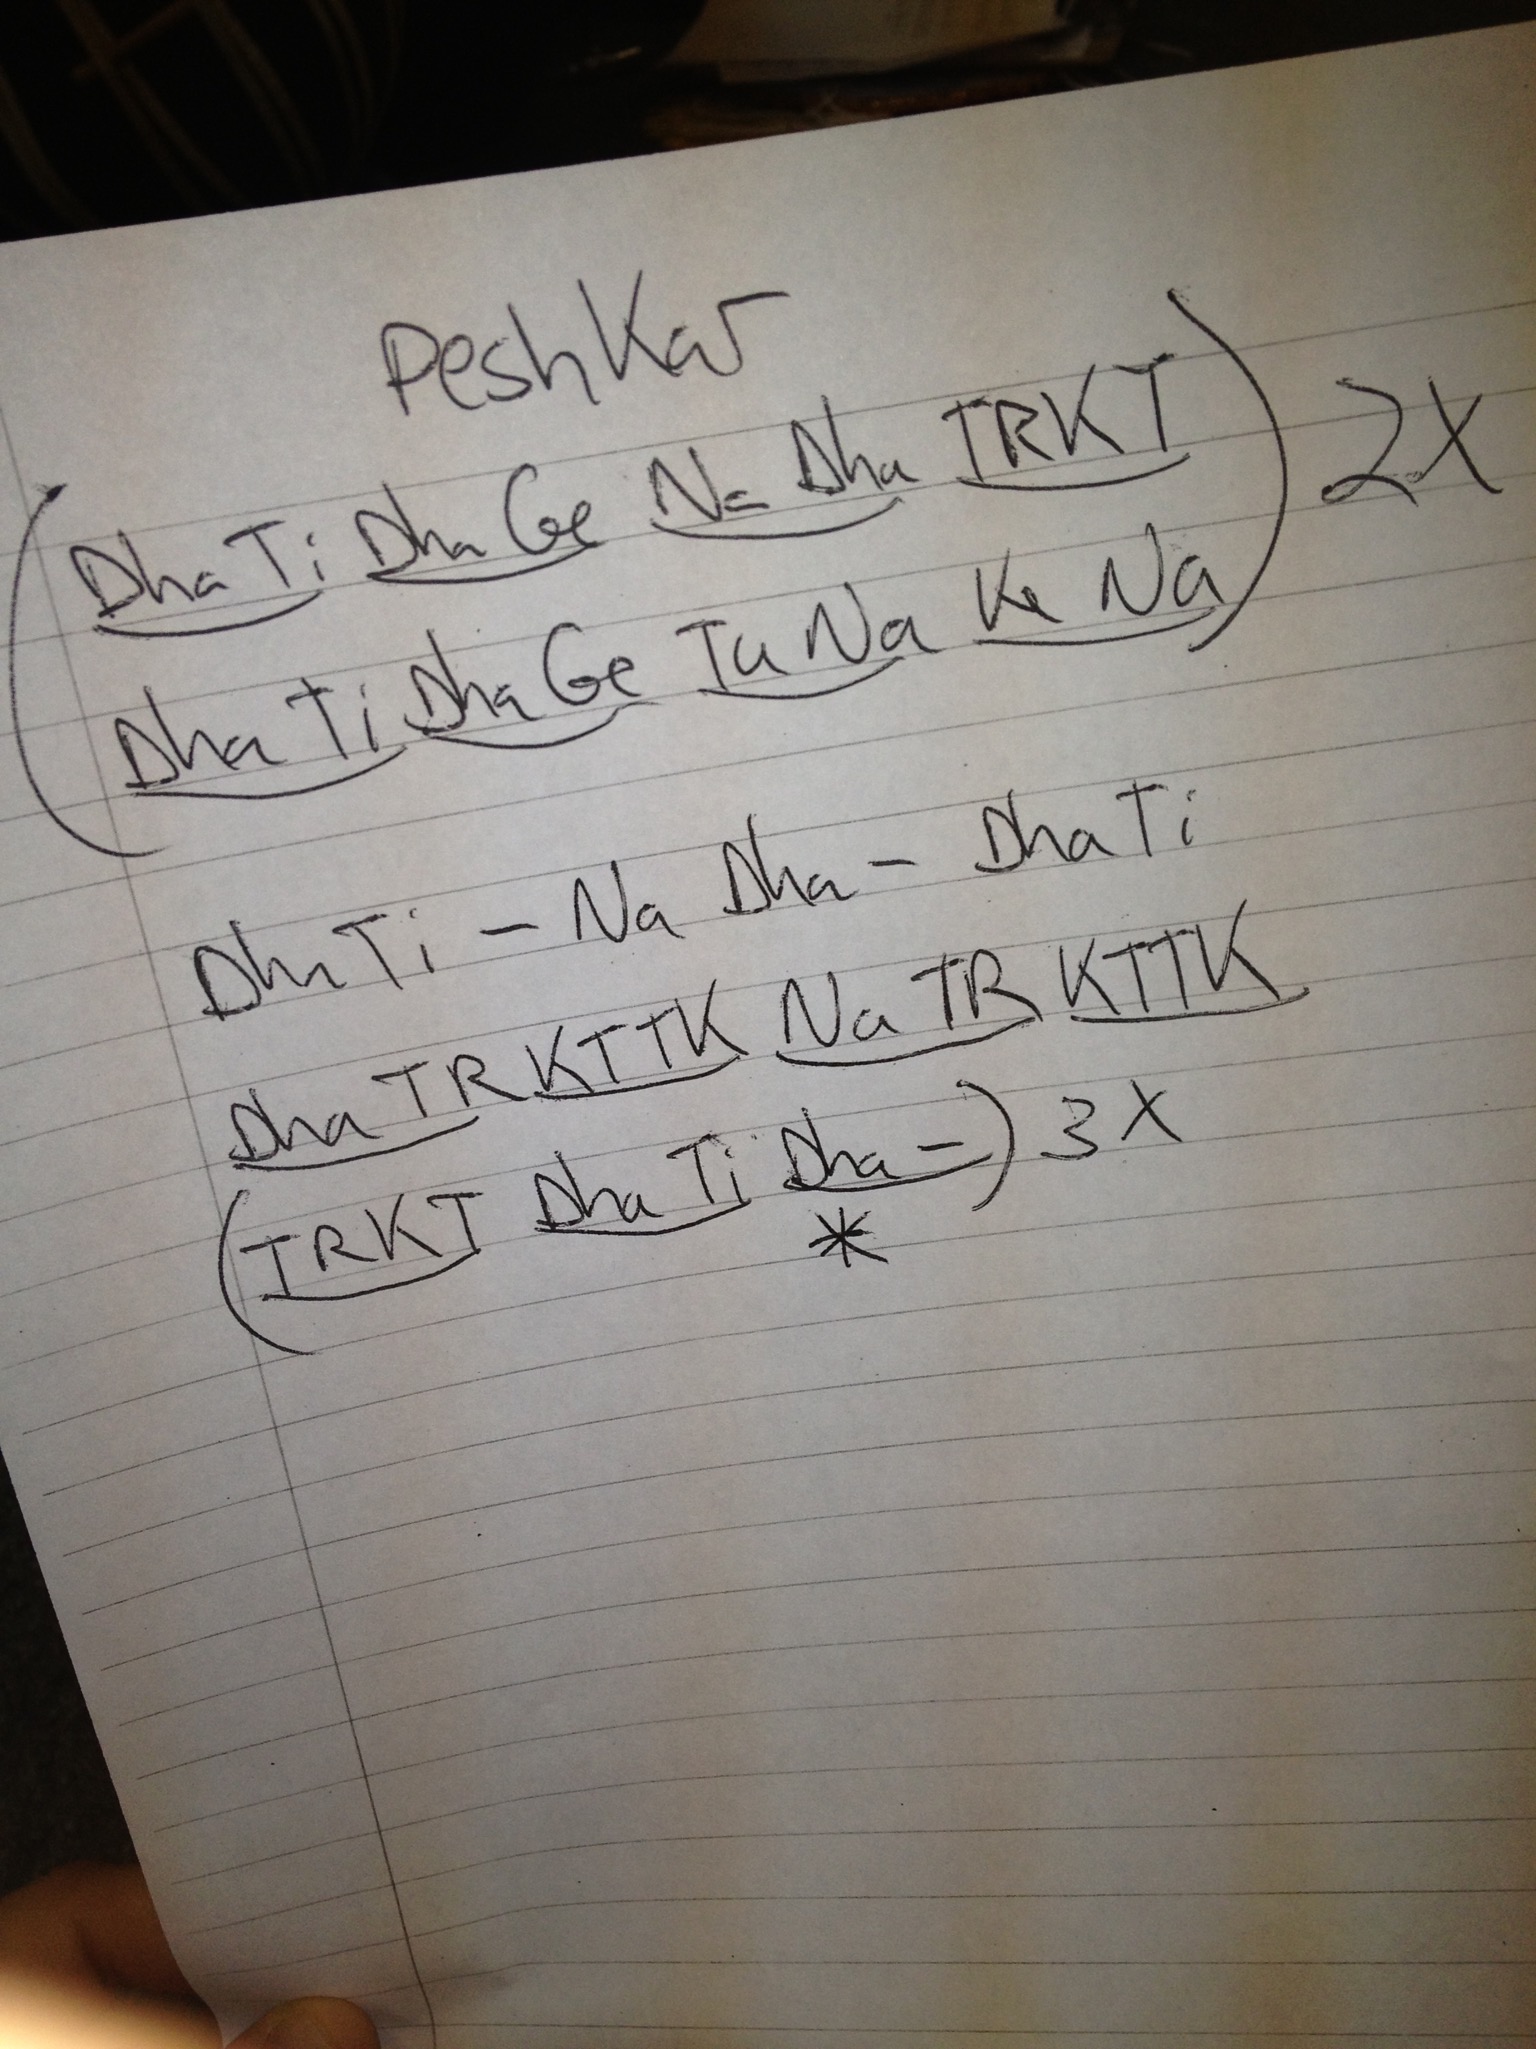 PeshKar
(DhaTi DhaGe Na Dha TRKT
DhaTi DhaGe TuNa Ke Na) 2X
DhaTi - Na Dha - DhaTi
DhaTR KTTK NaTR KTTK
(TRKT DhaTi Dha -) 3X
*